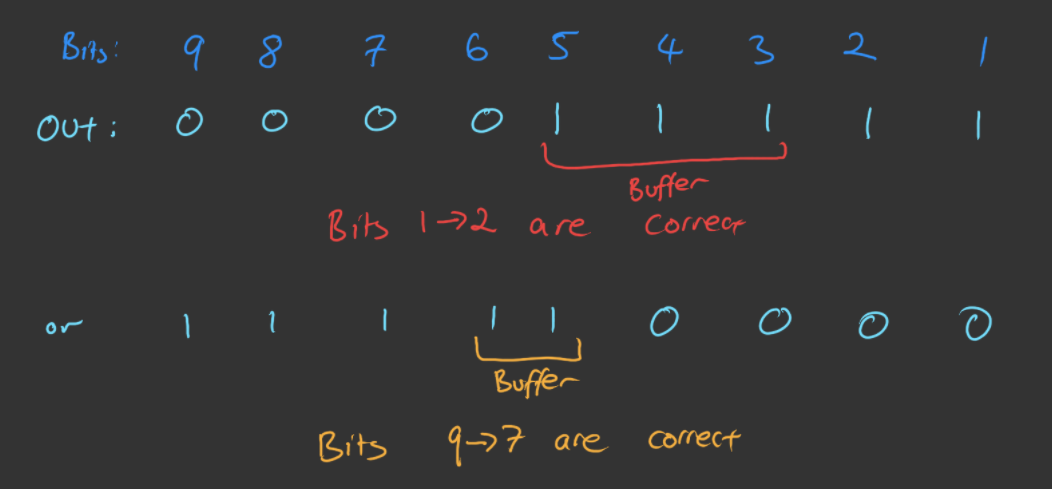 Bits: 9 8 7 6 5 4 3 2 1
Out: 0 0 0 0 1 1 1 1 1
Buffer
Bits 1→2 are correct
or 1 1 1 1 1 0 0 0 0
Buffer
Bits 9→7 are correct